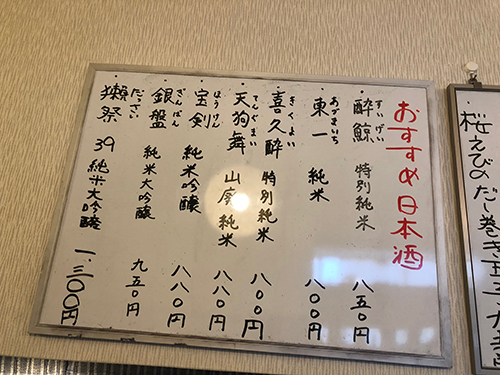 桜えびのだし巻き
おすすめ日本酒
すいげい
酔鯨 特別純米 八五〇円
あづまいち
東一 純米 八〇〇円
きくよい
喜久酔 特別純米 八〇〇円
てんぐまい
天狗舞 山廃純米 八八〇円
ほうけん
宝剣 純米吟醸 八八〇円
ぎんばん
銀盤 純米大吟醸 九五〇円
だっさい
獺祭 39 純米大吟醸 一、三〇〇円